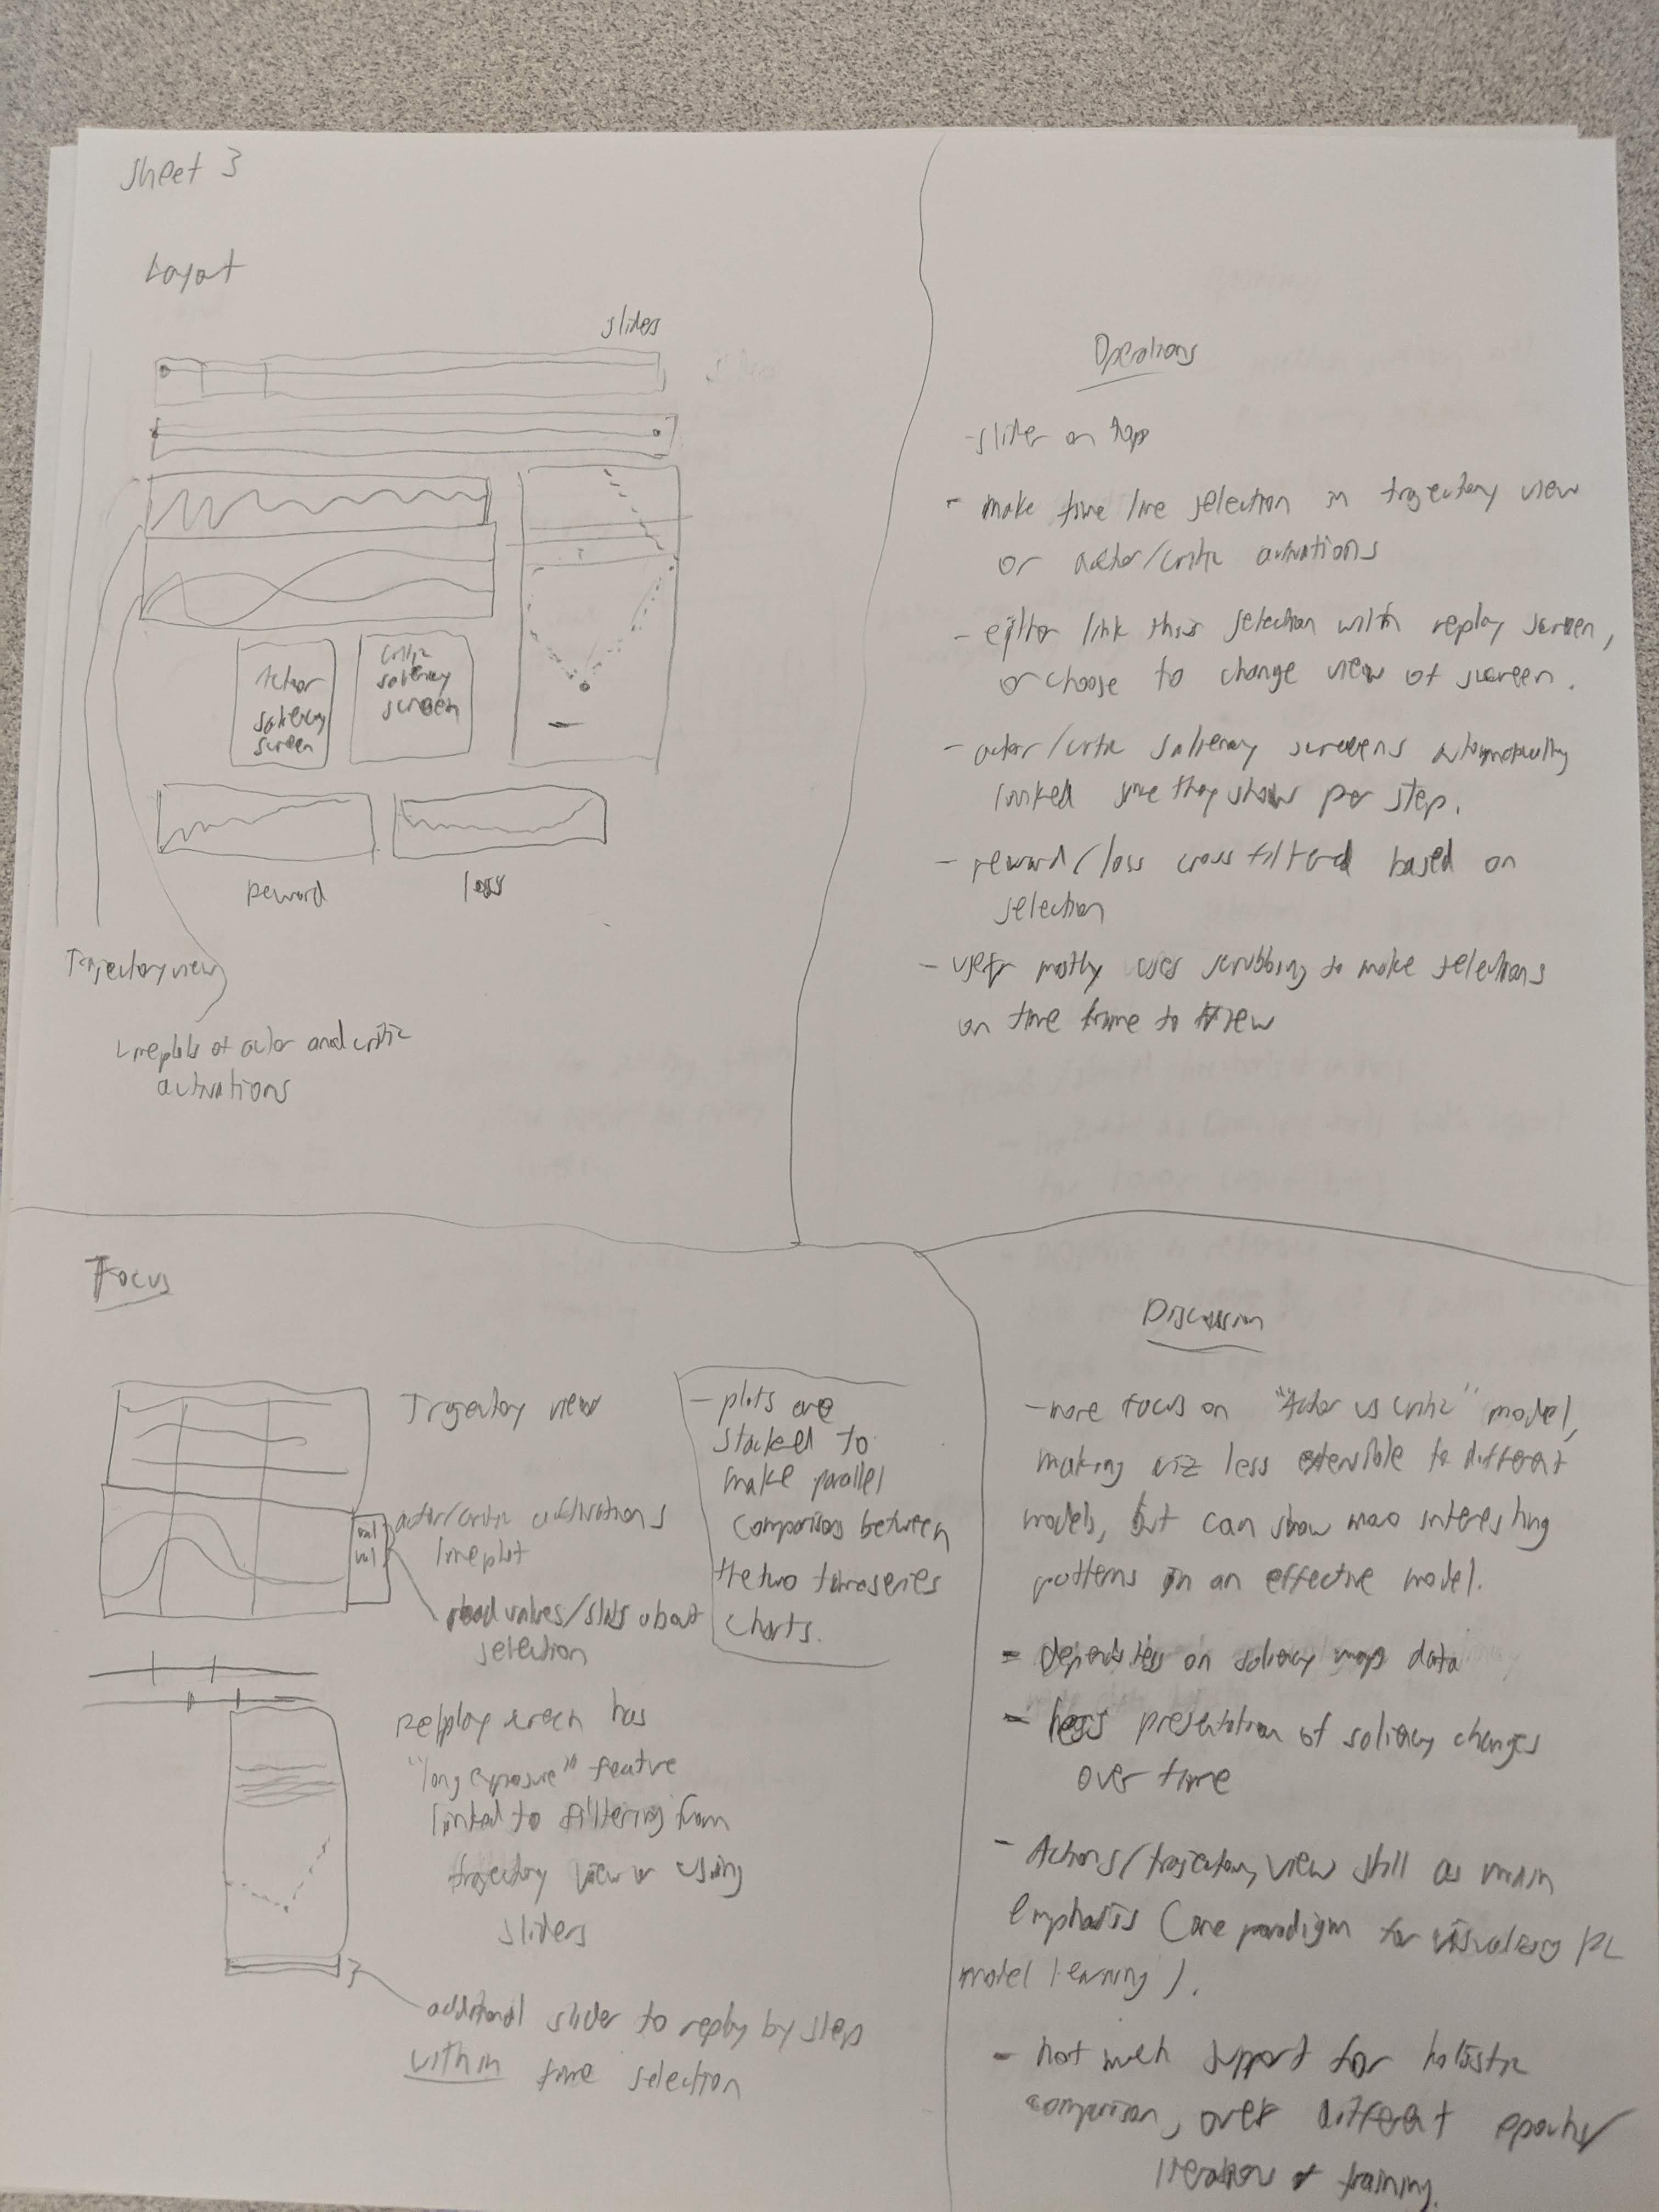 Sheet 3
Layout
sliders
Actor
saliency
screen
critic
saliency
screen
reward
loss
Trajectory view
Lineplots of actor and critic
activations
Operations
- slider on top
- make time line selection in trajectory view
or actor/critic activations
- either link this selection with replay screen,
or choose to change view of screen.
- actor/critic saliency screens automatically
linked since they show per step.
- reward/loss cross filtered based on
selection
- user mostly uses scrubbing to make selections
on time frame to view
Focus
Trajectory view
actor/critic activations
lineplot
val
val
read values/stats about
selection
- plots are
stacked to
make parallel
comparison between
the two timeseries
charts.
Replay screen has
"long exposure" feature
linked to filtering from
trajectory view or using
sliders
additional slider to replay by step
within time selection
Discussion
- more focus on "Actor vs Critic" model,
making viz less extensible to different
models, but can show more interesting
patterns in an effective model.
- depends less on saliency map data
- less presentation of saliency changes
over time
- Actions/trajectory view still as main
emphasis (core paradigm for visualizing RL
model learning).
- not much support for holistic
comparison, over different epochs/
iterations of training.